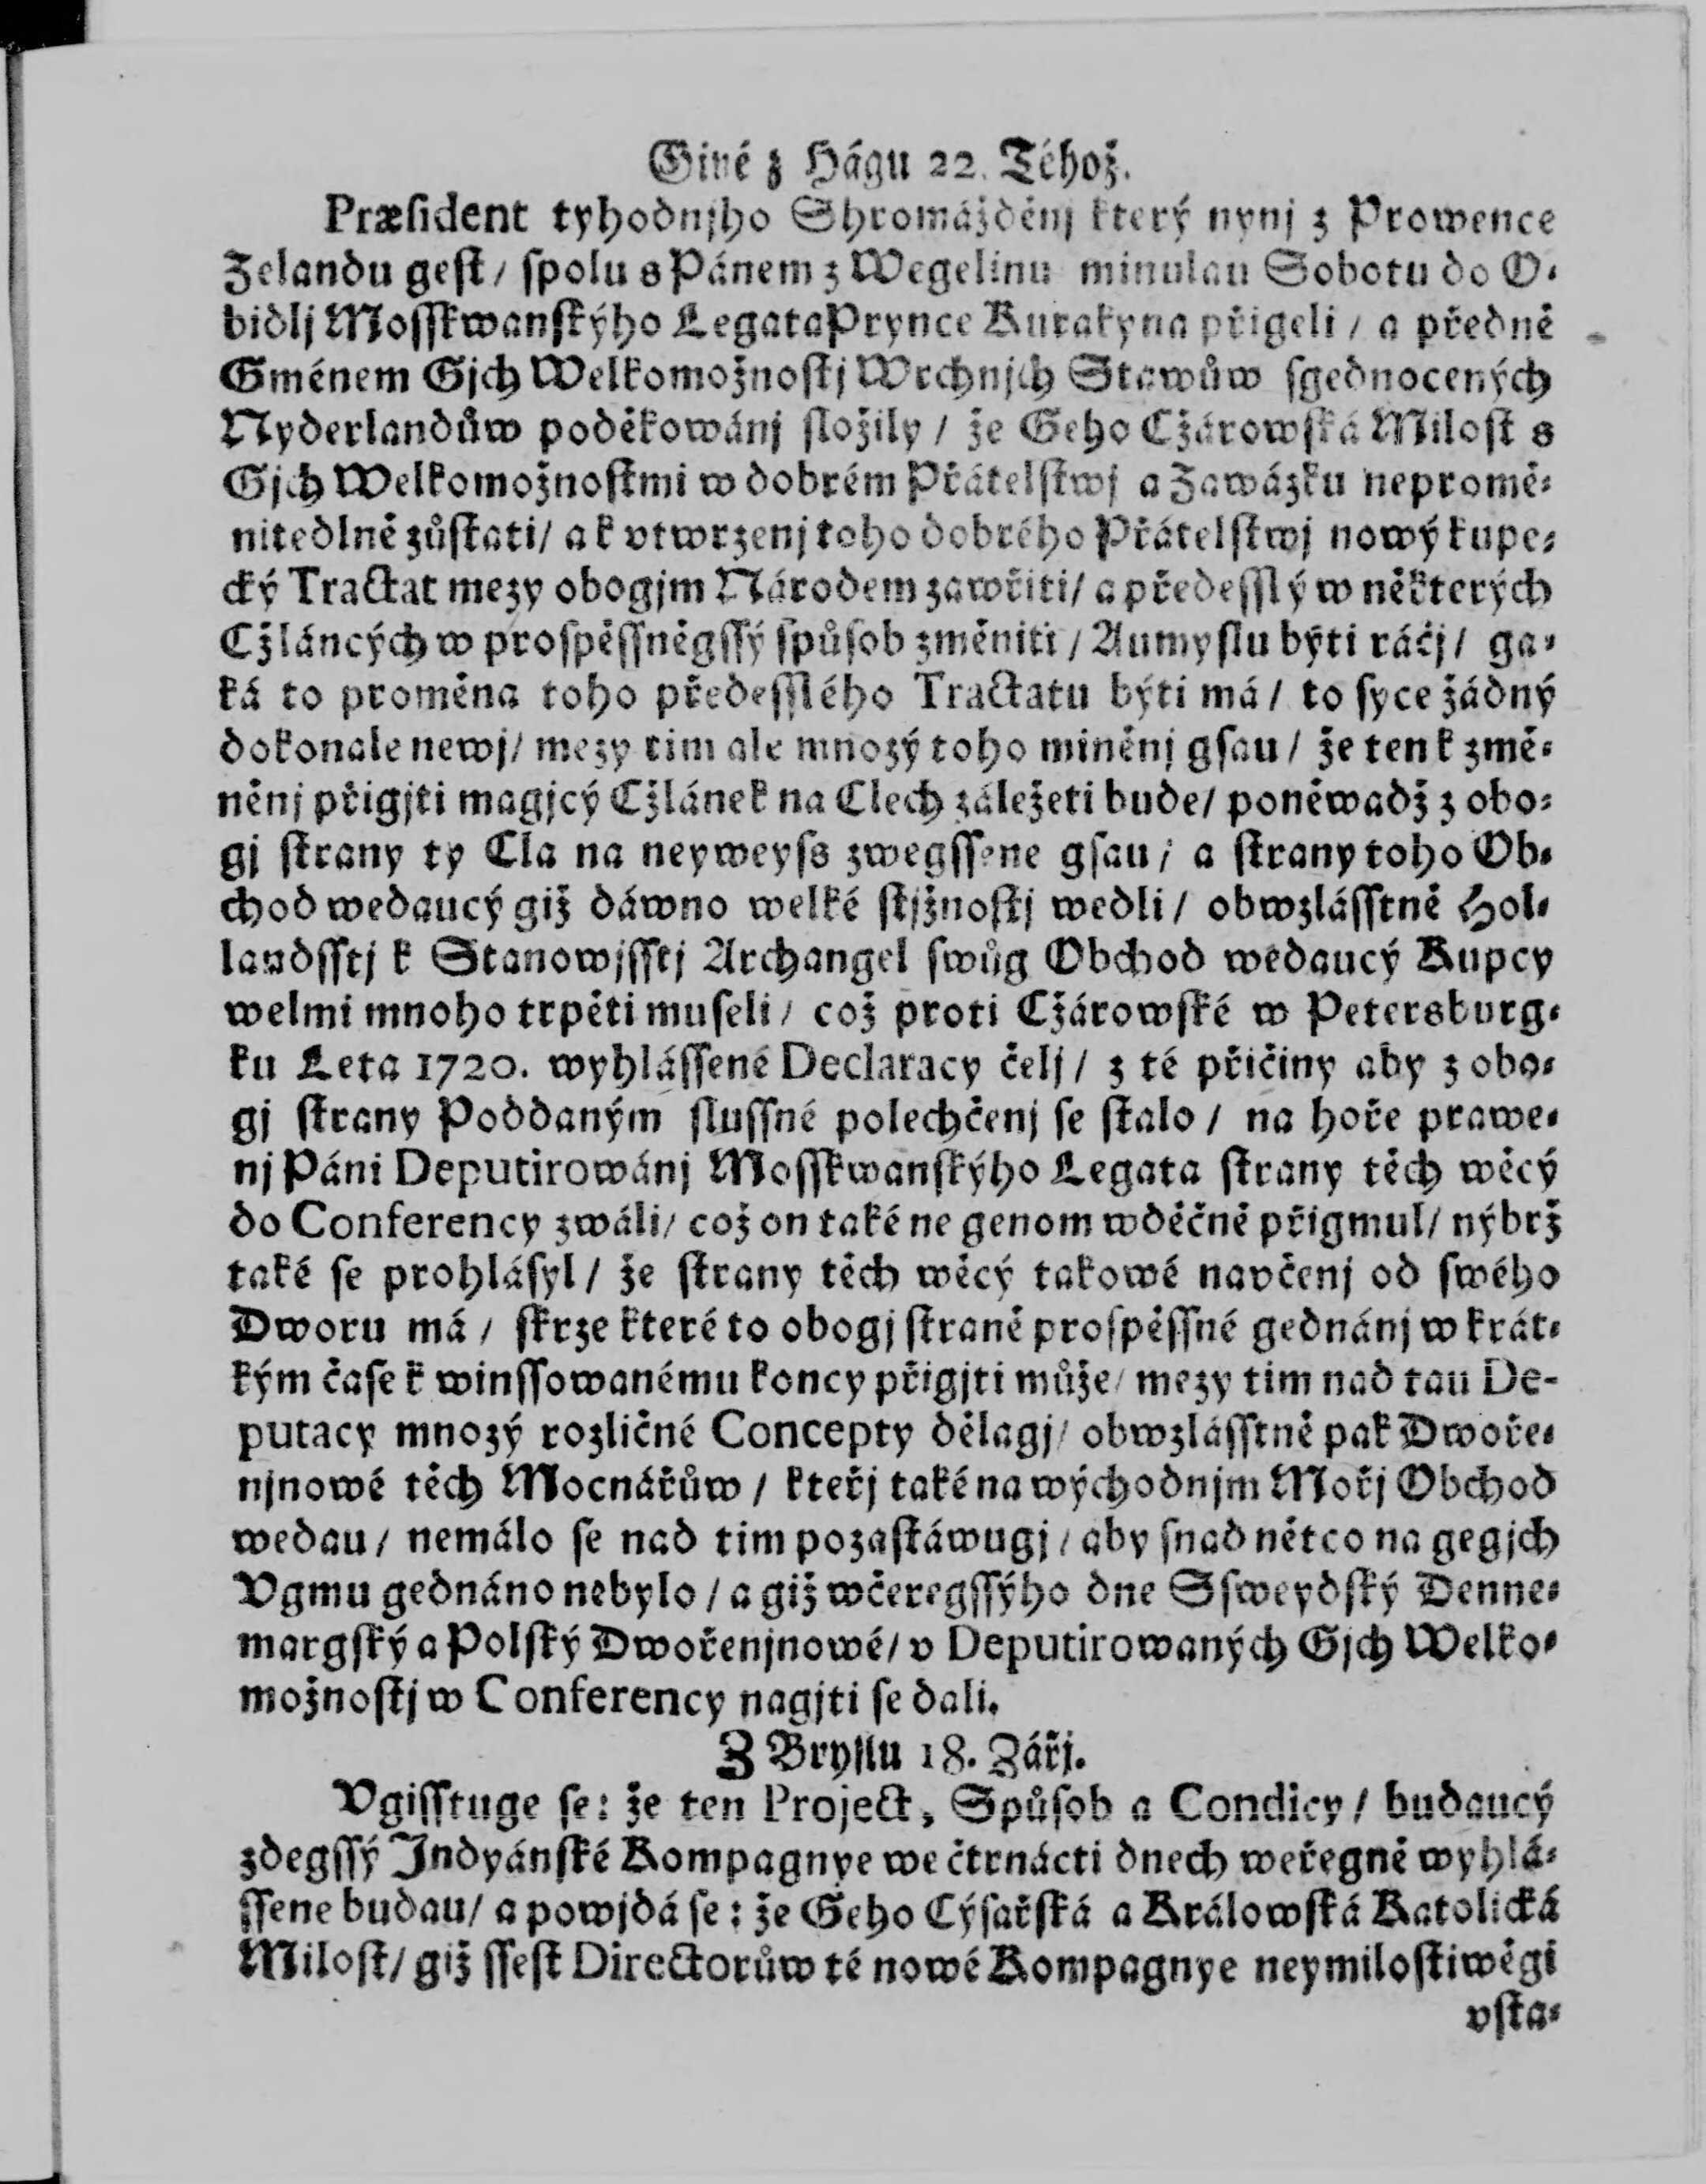 Giné z Hágu 22. Téhož.
Præſident tyhodnjho Shromážděnj který nynj z Prowence
Zelandu geſt / ſpolu s Pánem z Wegelinu minulau Sobotu do O-
bidlj Moſſkwanſkýho Legata Prynce Kurakyna přigeli / a předně
Gménem Gjch Welkomožnoſtj Wrchnjch Stawůw ſgednocených
Nyderlandůw poděkowánj ſložily / že Geho Cžárowſká Miloſt s
Gjch Welkomožnoſtmi w dobrém Přátelſtwj a Zawázku nepromě-
nitedlně zůſtati / a k vtwrzenj toho dobrého Přátelſtwj nowý kupe-
cký Tractat mezy obogjm Národem zawřiti / a předeſſlý w některých
Cžláncých w proſpěſſněgſſý ſpůſob změniti / Aumyſlu býti ráčj / ga-
ká to proměna toho předeſſlého Tractatu býti má / to ſyce žádný
dokonale newj / mezy tim ale mnozý toho miněnj gſau / že ten k změ-
něnj přigjti magjcý Cžlánek na Clech záležeti bude / poněwadž z obo-
gj ſtrany ty Cla na neyweyſs zwegſſene gſau / a ſtrany toho Ob-
chod wedaucý giž dáwno welké ſtjžnoſtj wedli / obwzláſſtně Hol-
landſſtj k Stanowjſſtj Archangel ſwůg Obchod wedaucý Kupcy
welmi mnoho trpěti muſeli / což proti Cžárowſké w Petersburg-
ku Leta 1720. wyhláſſené Declaracy čelj / z té přičiny aby z obo-
gj ſtrany Poddaným ſluſſné polechčenj ſe ſtalo / na hoře prawe-
nj Páni Deputirowánj Moſſkwanſkýho Legata ſtrany těch wěcý
do Conferency zwáli / což on také ne genom wděčně přigmul / nýbrž
také ſe prohláſyl / že ſtrany těch wěcý takowé navčenj od ſwého
Dworu má / ſkrze které to obogj ſtraně proſpěſſné gednánj w krát-
kým čaſe k winſſowanému koncy přigjti může / mezy tim nad tau De-
putacy mnozý rozličné Concepty dělagj / obwzláſſtně pak Dwoře-
njnowé těch Mocnářůw / kteřj také na wýchodnjm Mořj Obchod
wedau / nemálo ſe nad tim pozaſtáwugj / aby ſnad nětco na gegjch
Vgmu gednáno nebylo / a giž wčeregſſýho dne Sſweydſký Denne-
margſký a Polſký Dwořenjnowé / v Deputirowaných Gjch Welko-
možnoſtj w Conferency nagjti ſe dali.
Z Bryſlu 18. Zářj.
Vgiſſtuge ſe: že ten Project, Spůſob a Condicy / budaucý
zdegſſý Indyánſké Kompagnye we čtrnácti dnech weřegně wyhlá-
ſſene budau / a powjdá ſe: že Geho Cýſařſká a Králowſká Katolická
Miloſt / giž ſſeſt Directorůw té nowé Kompagnye neymiloſtiwěgi
vſta-